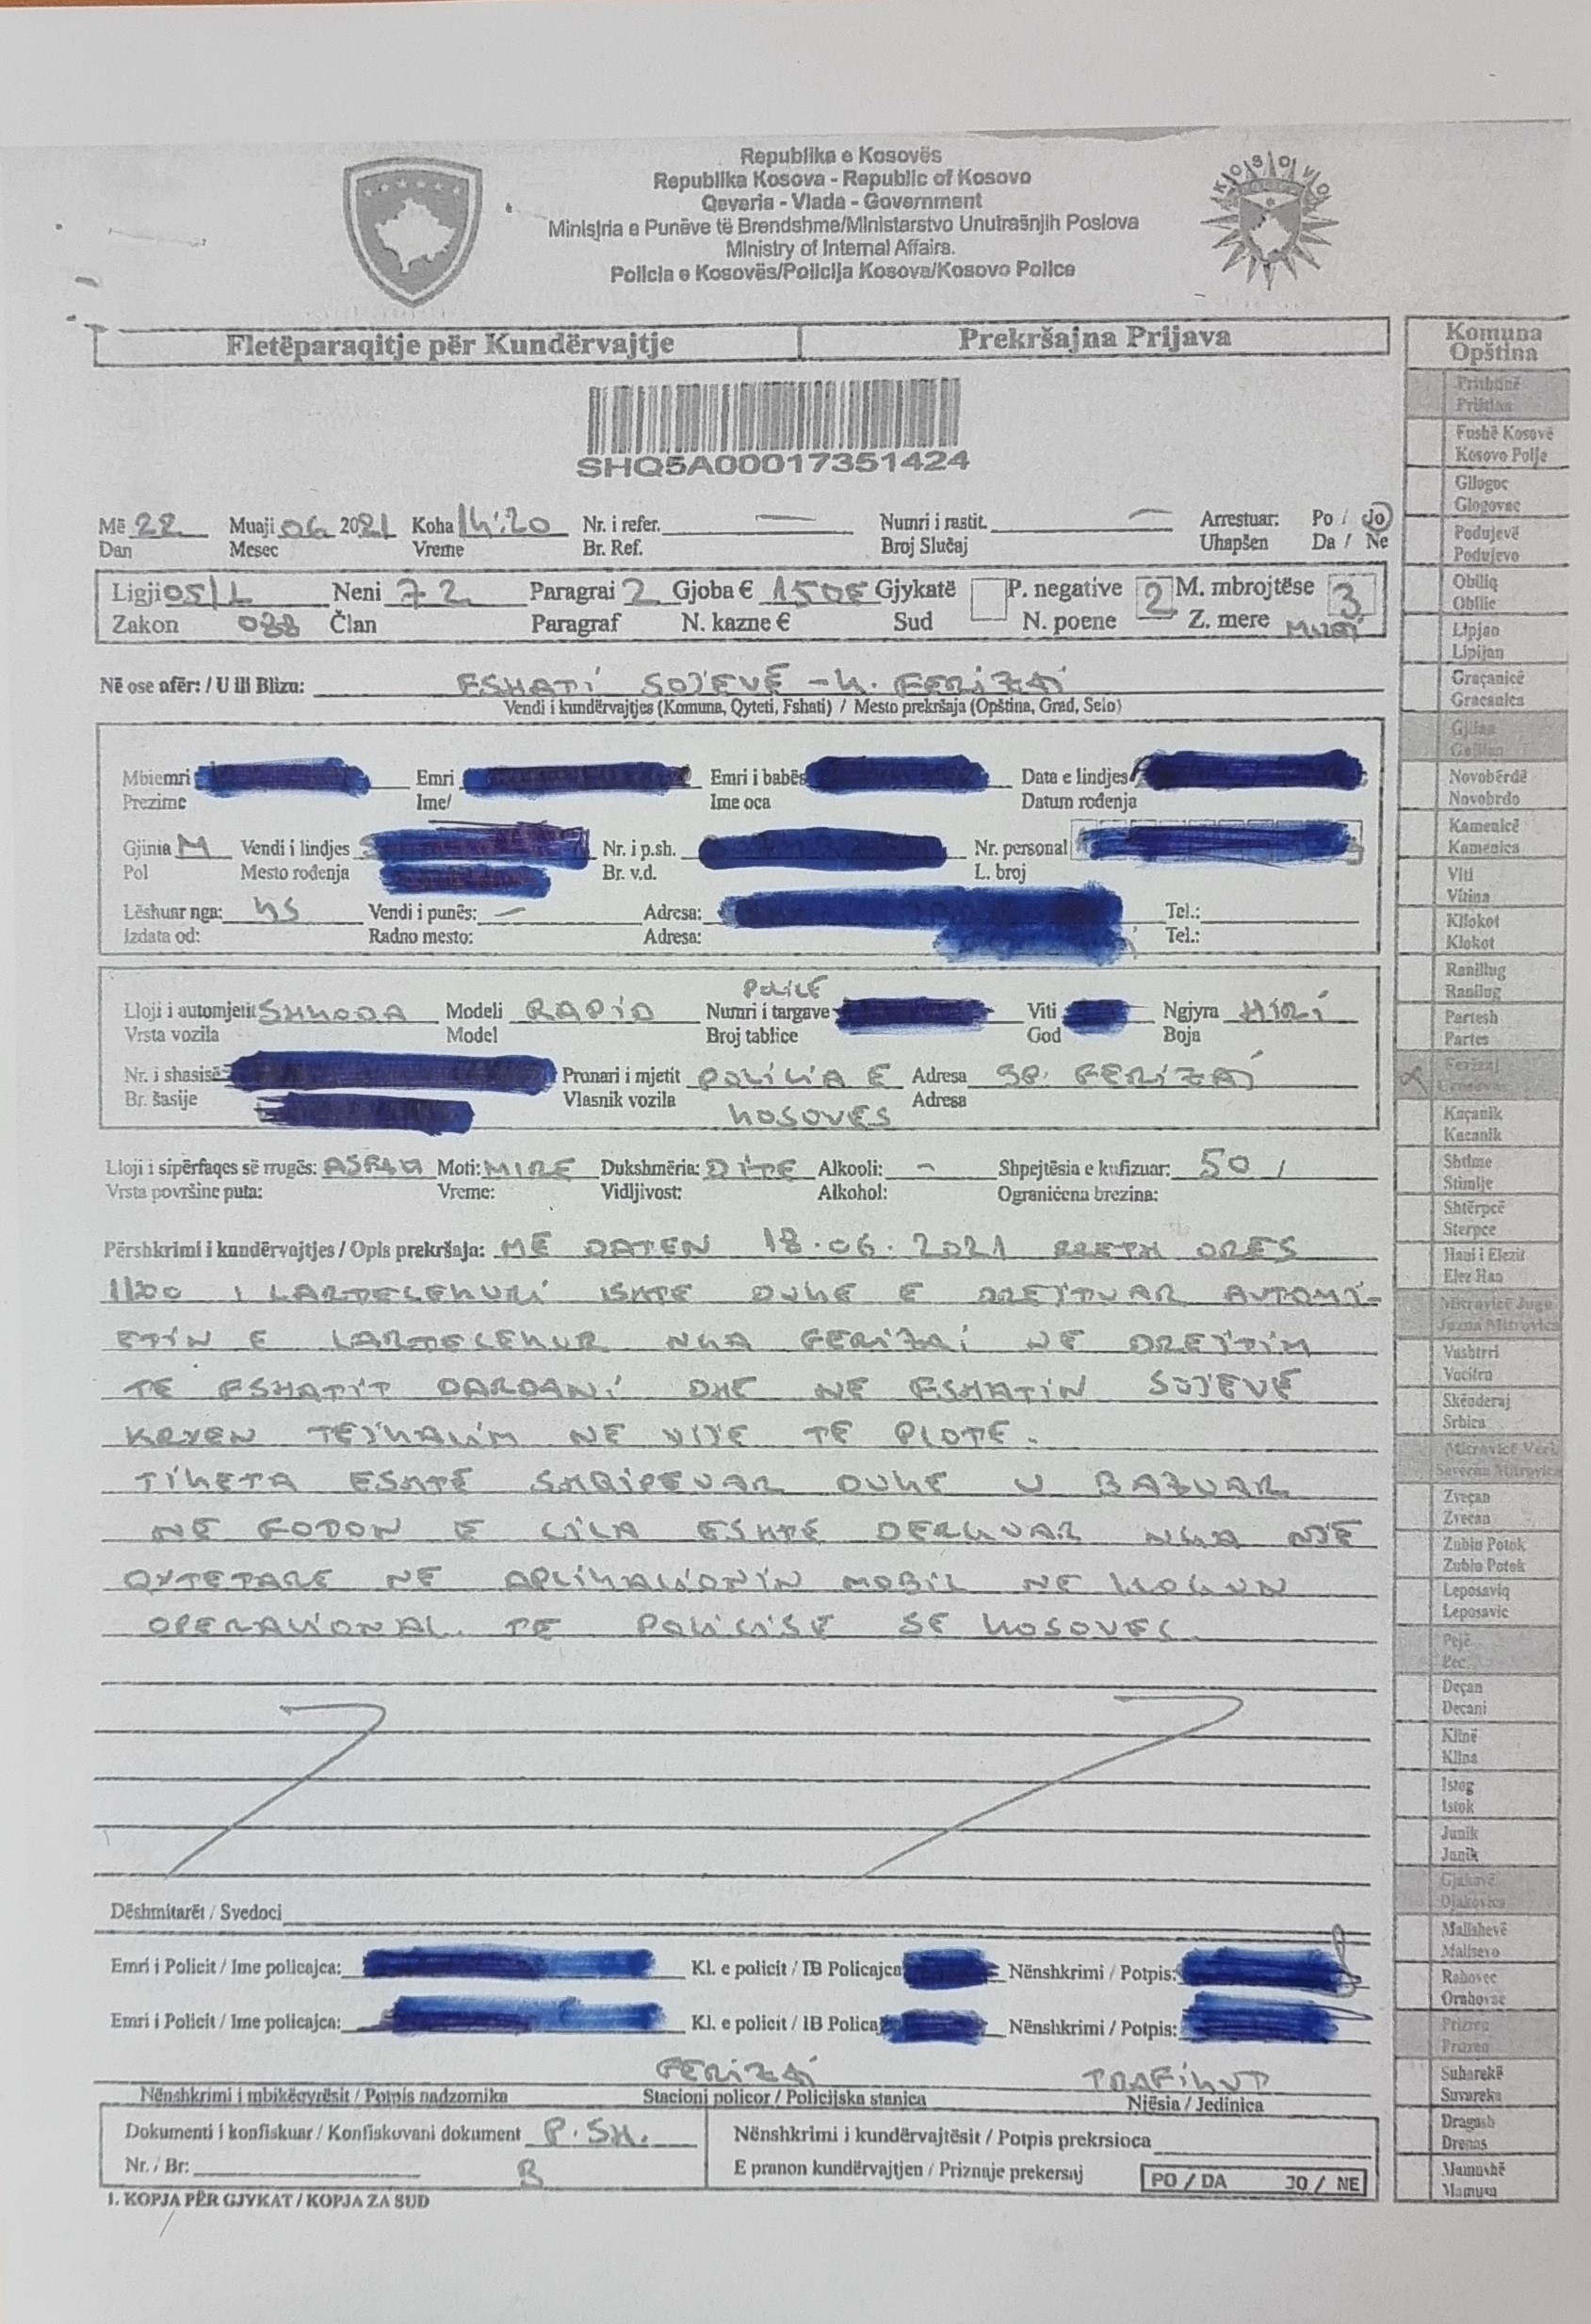 Republika e Kosovës
Republika Kosova - Republic of Kosovo
Qeveria - Vlada - Government
Ministria e Punëve të Brendshme/Ministarstvo Unutrašnjih Poslova
Ministry of Internal Affairs.
Policia e Kosovës/Policija Kosova/Kosovo Police
KOSOVO
Fletëparaqitje për Kundërvajtje Prekršajna Prijava
SHQ5A00017351424
Më 22 Muaji 06 2021 Koha 14:20 Nr. i refer. — Numri i rastit. — Arrestuar: Po / Jo
Dan Mesec Vreme Br. Ref. Broj Slučaj Uhapšen Da / Ne
Ligji 05/L Neni 72 Paragrai 2 Gjoba € 150€ Gjykatë P. negative 2 M. mbrojtëse 3
Zakon 088 Član Paragraf N. kazne € Sud N. poene Z. mere MUAJ
Në ose afër: / U ili Blizu: FSHATI SOJEVË - K. FERIZAJ
Vendi i kundërvajtjes (Komuna, Qyteti, Fshati) / Mesto prekršaja (Opština, Grad, Selo)
Mbiemri Emri Emri i babës Data e lindjes
Prezime Ime/ Ime oca Datum rođenja
Gjinia M Vendi i lindjes Nr. i p.sh. Nr. personal
Pol Mesto rođenja Br. v.d. L. broj
Lëshuar nga: KS Vendi i punës: — Adresa: Tel.:
izdata od: Radno mesto: Adresa: Tel.:
POLICE
Lloji i automjetit SHKODA Modeli RAPID Numri i targave Viti Ngjyra HIRI
Vrsta vozila Model Broj tablice God Boja
Nr. i shasisë Pronari i mjetit POLICIA E Adresa SP. FERIZAJ
Br. šasije Vlasnik vozila KOSOVES Adresa
Lloji i sipërfaqes së rrugës: Moti: MIRE Dukshmëria: DITE Alkooli: - Shpejtësia e kufizuar: 50 /
Vrsta površine puta: Vreme: Vidljivost: Alkohol: Ogranićena brezina:
Përshkrimi i kundërvajtjes / Opis prekršaja: ME DATEN 18.06.2021 RRETH ORES
1100 I LARTECEKURI ISHTE DUKE E DREJTUAR AUTOMJ-
ETIN E LARTECEKUR NGA FERIZAJ NE DREJTIM
TE FSHATIT DARDANI DHE NE FSHATIN SOJEVË
KRYEN TEJKALIM NE VIJE TE PLOTE.
TIKETA ESHTË SHQIPTUAR DUKE U BAZUAR
NE FOTON E CILA ESHTË DERGUAR NGA NJË
QYTETARE NE APLIKACIONIN MOBIL NE KOKUN
OPERACIONAL TE POLICISË SE KOSOVES.
Dëshmitarët / Svedoci
Emri i Policit / Ime policajca: Kl. e policit / IB Policajca Nënshkrimi / Potpis:
Emri i Policit / Ime policajca: Kl. e policit / IB Policaj Nënshkrimi / Potpis:
FERIZAJ TRAFIKUT
Nënshkrimi i mbikëqyrësit / Potpis nadzornika Stacioni policor / Policijska stanica Njësia / Jedinica
Dokumenti i konfiskuar / Konfiskovani dokument P.SH. Nënshkrimi i kundërvajtësit / Potpis prekrsioca
Nr. / Br: B E pranon kundërvajtjen / Priznaje prekersaj PO / DA JO / NE
1. KOPJA PËR GJYKAT / KOPJA ZA SUD
Komuna
Opština
Prishtinë
Priština
Fushë Kosovë
Kosovo Polje
Gllogoc
Glogovac
Podujevë
Podujevo
Obiliq
Obilic
Lipjan
Lipljan
Graçanicë
Gracanica
Gjilan
Gnjilan
Novobërdë
Novobrdo
Kamenicë
Kamenica
Viti
Vitina
Kllokot
Klokot
Ranillug
Ranilug
Partesh
Partes
X Ferizaj
Urosevac
Kaçanik
Kacanik
Shtime
Stimlje
Shtërpcë
Sterpce
Hani i Elezit
Elez Han
Mitrovicë Jugu
Juzna Mitrovica
Vushtrri
Vucitrn
Skënderaj
Srbica
Mitrovicë Veri.
Severna Mitrovica
Zveçan
Zvecan
Zubin Potok
Zubin Potok
Leposaviq
Leposavic
Pejë
Pec
Deçan
Decani
Klinë
Klina
Istog
Istok
Junik
Junik
Gjakovë
Djakovica
Malishevë
Malisevo
Rahovec
Orahovac
Prizren
Prizren
Suharekë
Suvareka
Dragash
Drenas
Mamushë
Mamusa